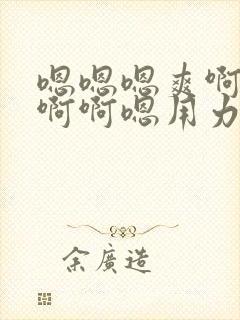 嗯嗯嗯爽啊
啊啊嗯用力
余廣造